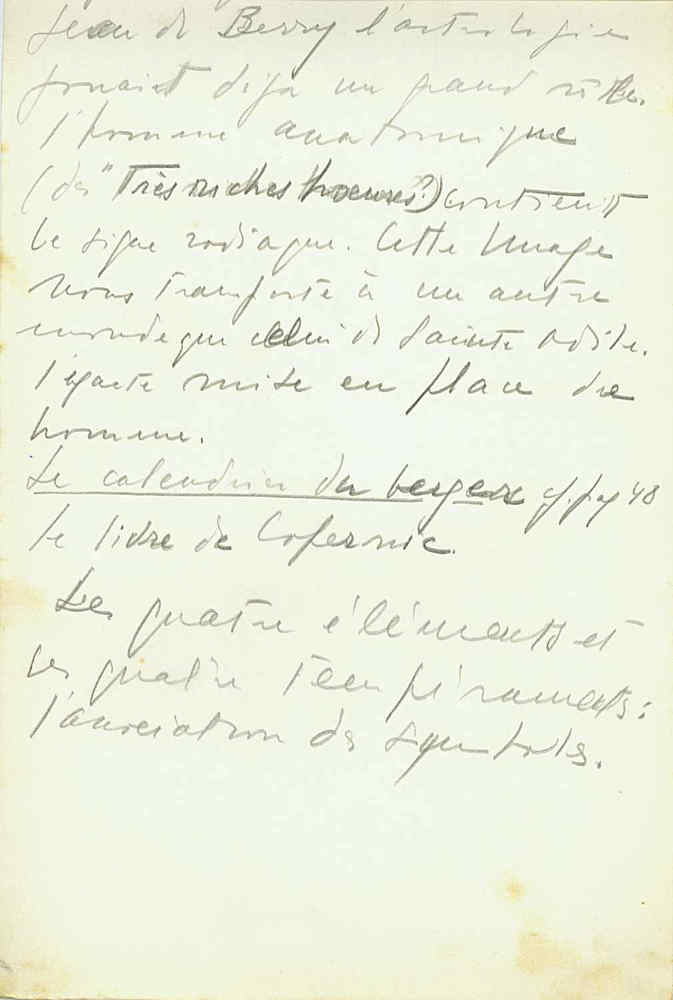 Jean de Berry l'astrologie
jouait déjà un grand rôle.
l'homme anatomique
(des "Très riches heures"?) contient
le signe zodiaque. Cette Image
nous transporte à un autre
monde que celui de Sainte Odile.
l'exacte mise en place de
homme.
Le calendrier des bergers cf. pag 48
le livre de Copernic.
Les quatre éléments et
les quatre tempéraments:
l'association des symboles.